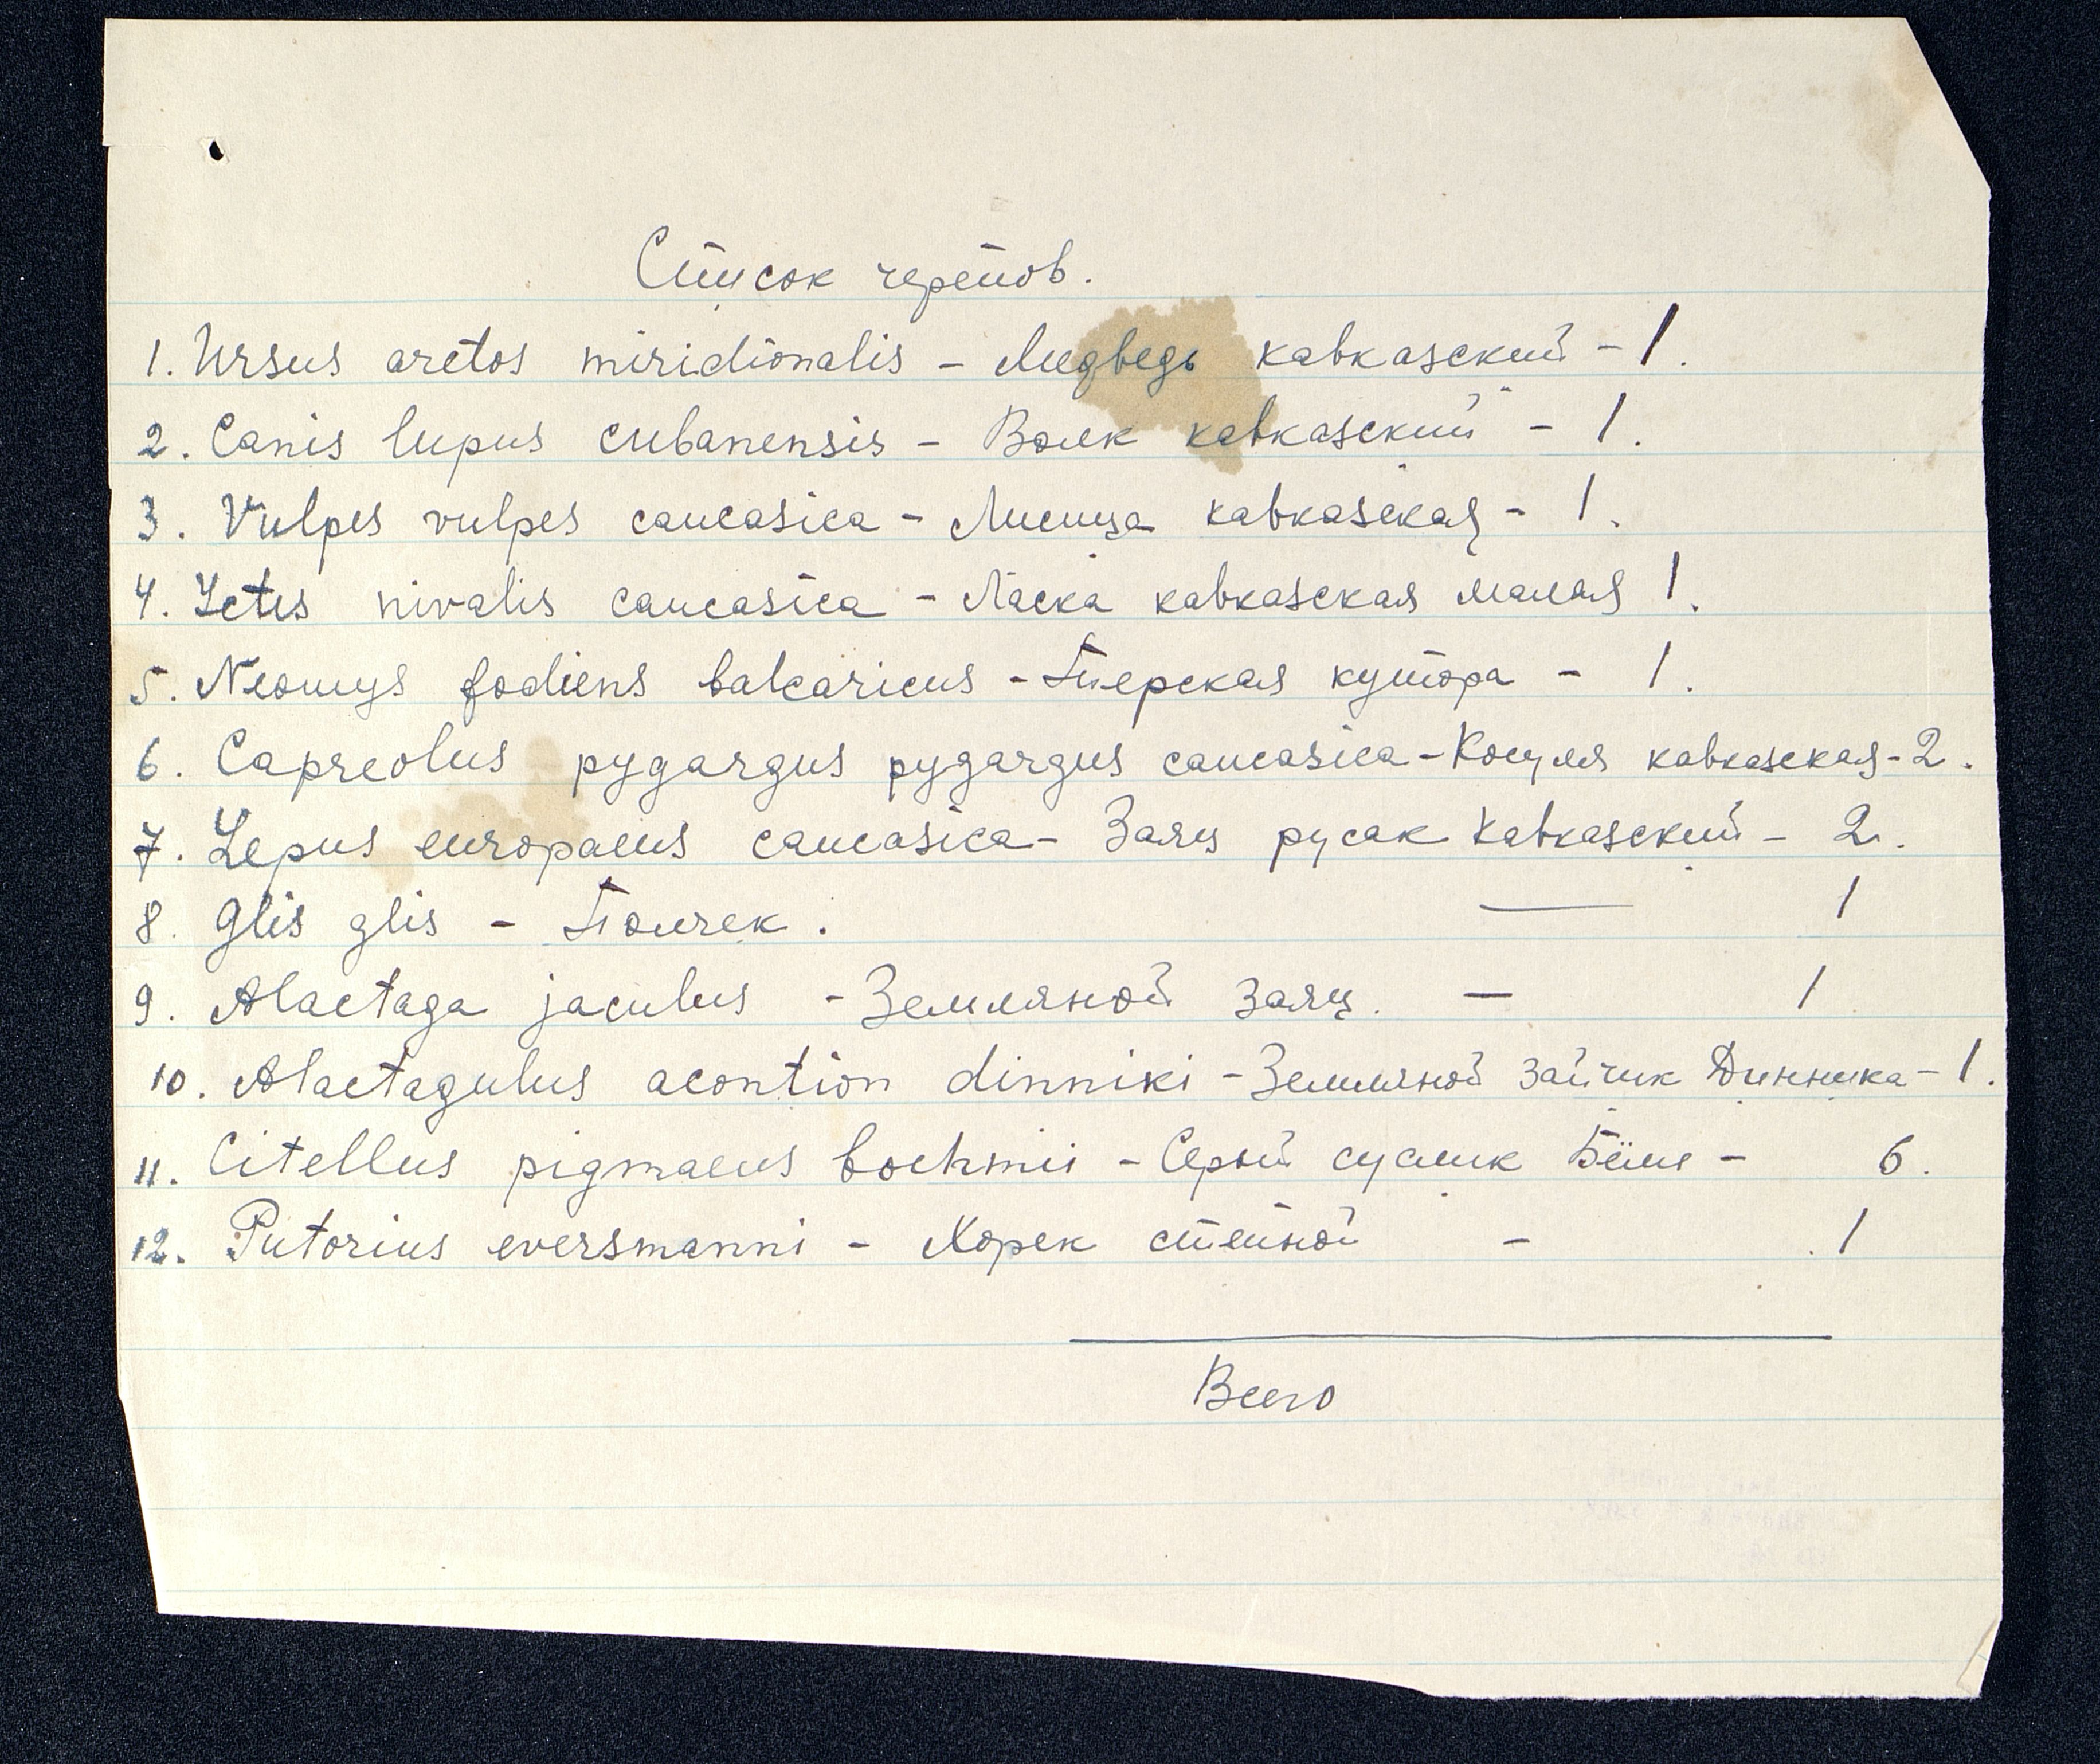 Список черепов.
1. Ursus arctos miridionalis - Медведь кавказский - 1.
2. Canis lupus cubanensis - Волк кавказский - 1.
3. Vulpes vulpes caucasica - Лисица кавказская - 1.
4. Ictis nivalis caucasica - Ласка кавказская малая 1.
5. Neomys fodiens balcaricus - Терская кутора - 1.
6. Capreolus pygargus pygargus caucasica - Косуля кавказская - 2.
7. Lepus europaeus caucasica - Заяц русак кавказский - 2.
8. Glis glis - Полчек. — 1
9. Alactaga jaculus - Земляной заяц. — 1
10. Alactagulus acontion dinniki - Земляной зайчик Динника - 1.
11. Citellus pigmaeus boehmii - Серый суслик Бёме - 6.
12. Putorius eversmanni - Хорек степной - 1
Всего